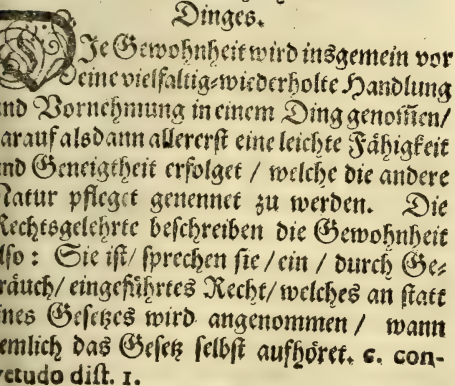 Dinges.
DJe Gewohnheit wird insgemein vor
eine vielfaltig-wiederholte Handlung
und Vornehmung in einem Ding genom̃en/
darauf alsdann allererst eine leichte Fähigkeit
und Geneigtheit erfolget / welche die andere
Natur pfleget genennet zu werden. Die
Rechtsgelehrte beschreiben die Gewohnheit
also : Sie ist/ sprechen sie / ein / durch Ge-
bräuch/ eingeführtes Recht/ welches an statt
eines Gesetzes wird angenommen / wann
nemlich das Gesetz selbst aufhöret. c. con-
svetudo dist. 1.